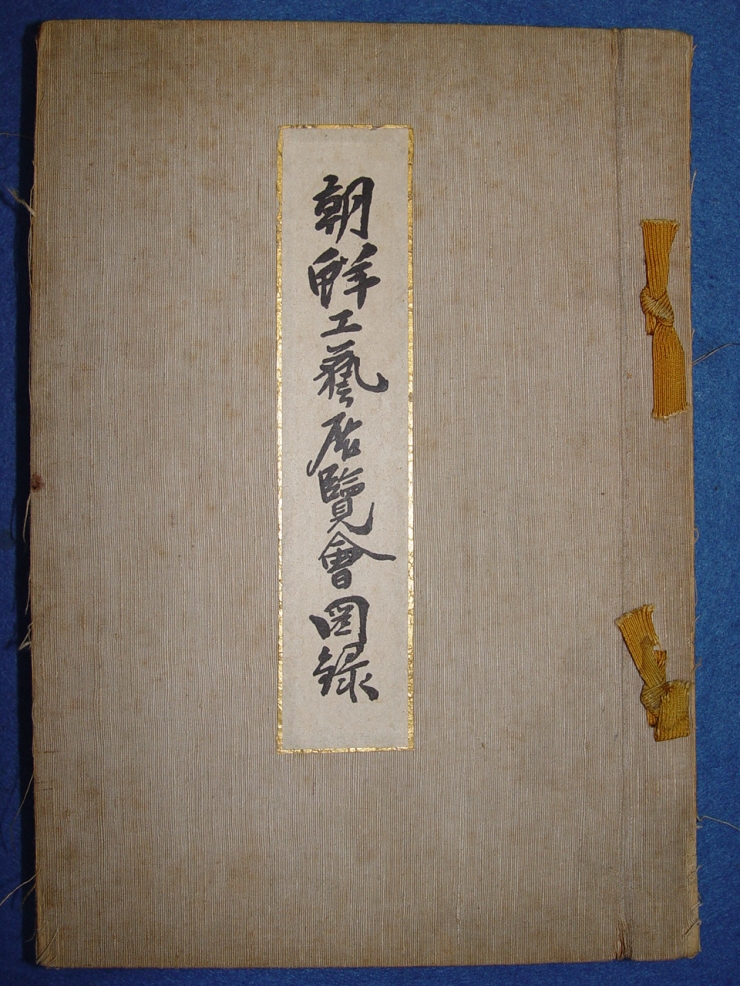 朝鮮工藝展覽會図録